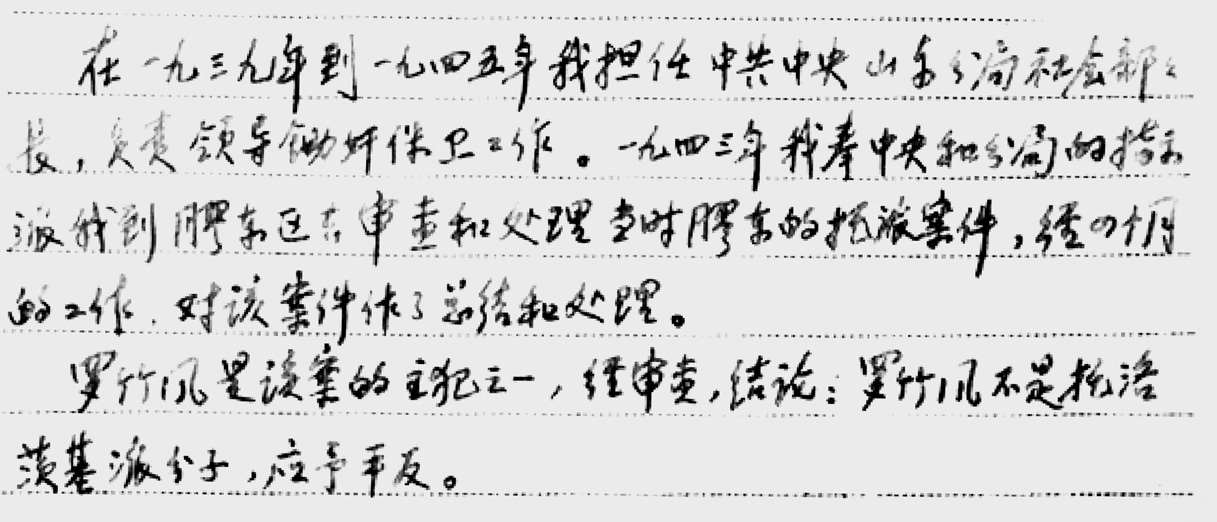 在一九三九年到一九四五年我担任中共中央山东分局社会部之
长，负责领导锄奸保卫工作。一九四三年我奉中央和分局的指示
派我到膠东区去审查和处理当时膠东的托派案件，经四个月
的工作，对该案件作了总结和处理。
罗竹风是该案的主犯之一，经审查，结论：罗竹风不是托洛
茨基派分子，应予平反。